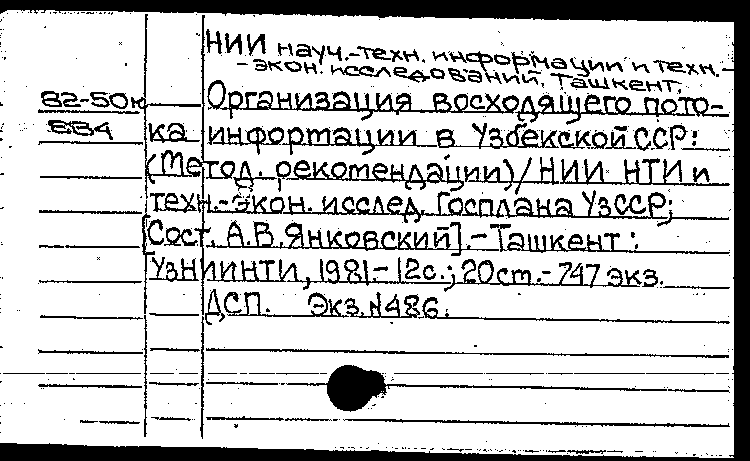 НИИ науч.-техн. информации и техн.-
-экон. исследований. Ташкент.
82-50к Организация восходящего пото-
884 ка инфортации в Узбекской ССР:
(Метод. рекомендации)/НИИ НТИ и
техн.-экон. исслед. Госплана УзССР;
[Сост. А.В.Янковский].-Ташкент:
УзНИИНТИ, 1981.-12с.; 20см.-747 экз.
ДСП. Экз.№486.